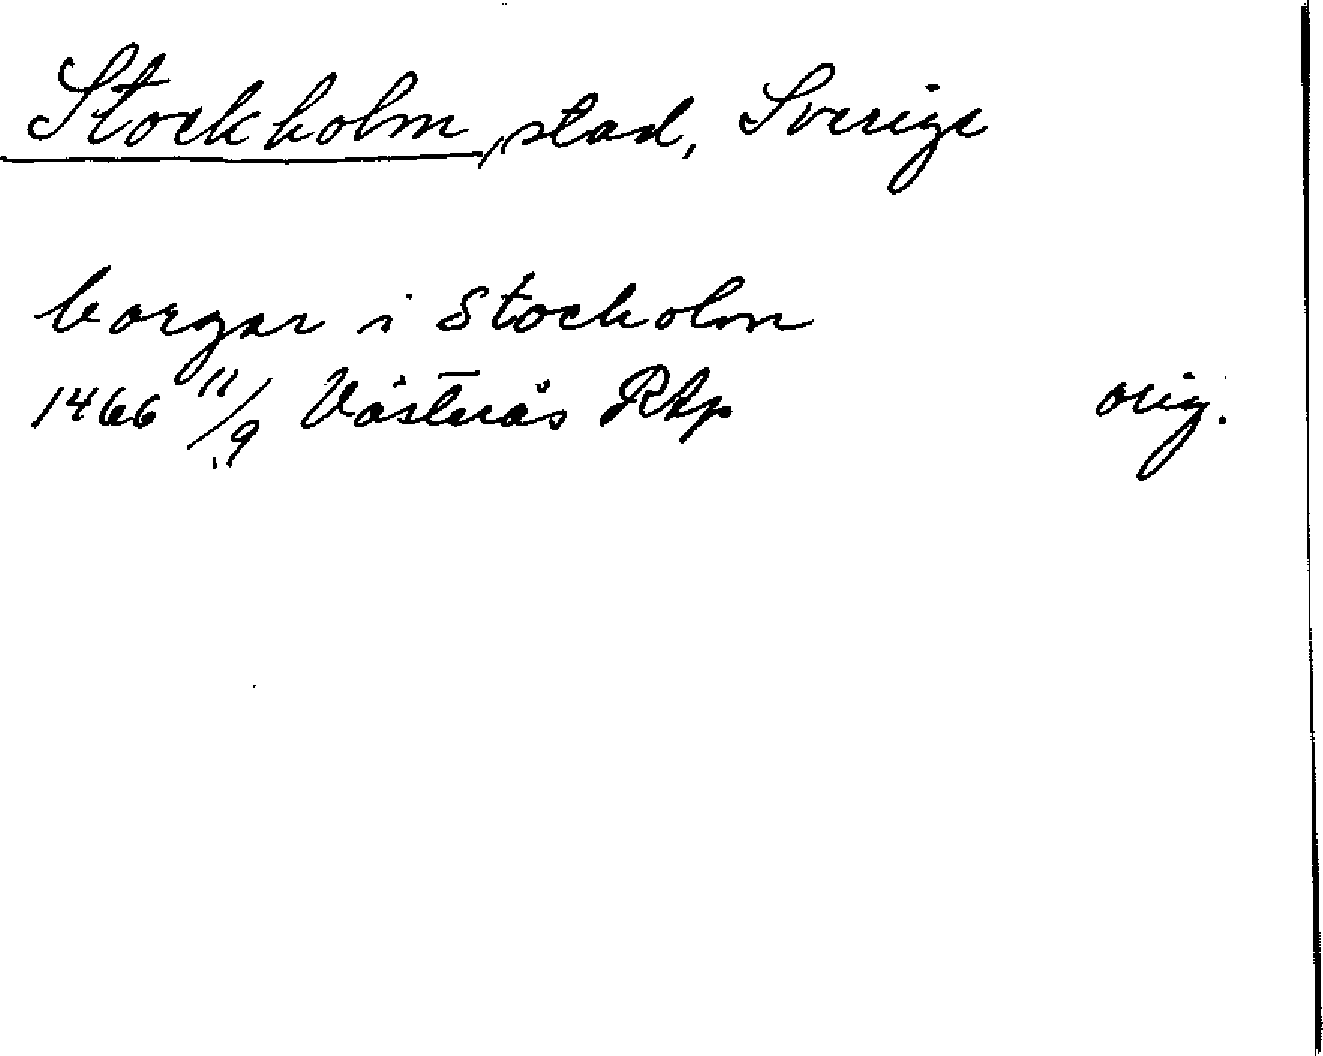 Stockholm, stad, Sverige
borgar i Stocholm
1466 11/9 Västerås RAp orig.